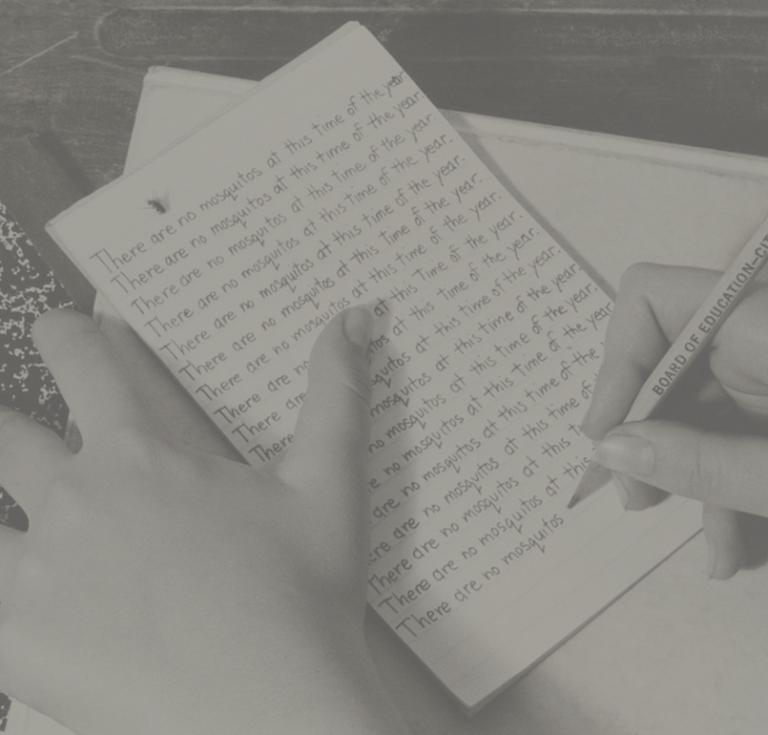 There are no mosquitos at this time of the year
There are no mosquitos at this time of the year
There are no mosquitos at this time of the year.
There are no mosquitos at this time of the year.
There are no mosquitos at this time of the year.
There are no mosquitos at this time of the year.
There are no mosquitos at this time of the year.
There are no at this time of the year.
There are at this time of the year.
There at this time of the year.
mosquitos at this time of the year.
no mosquitos at this time of the year.
no mosquitos at this time of the year
are no mosquitos at this time of the
are no mosquitos at this time of
There are no mosquitos at this
There are no mosquitos at this
There are no mosquitos
BOARD OF EDUCATION-CIT